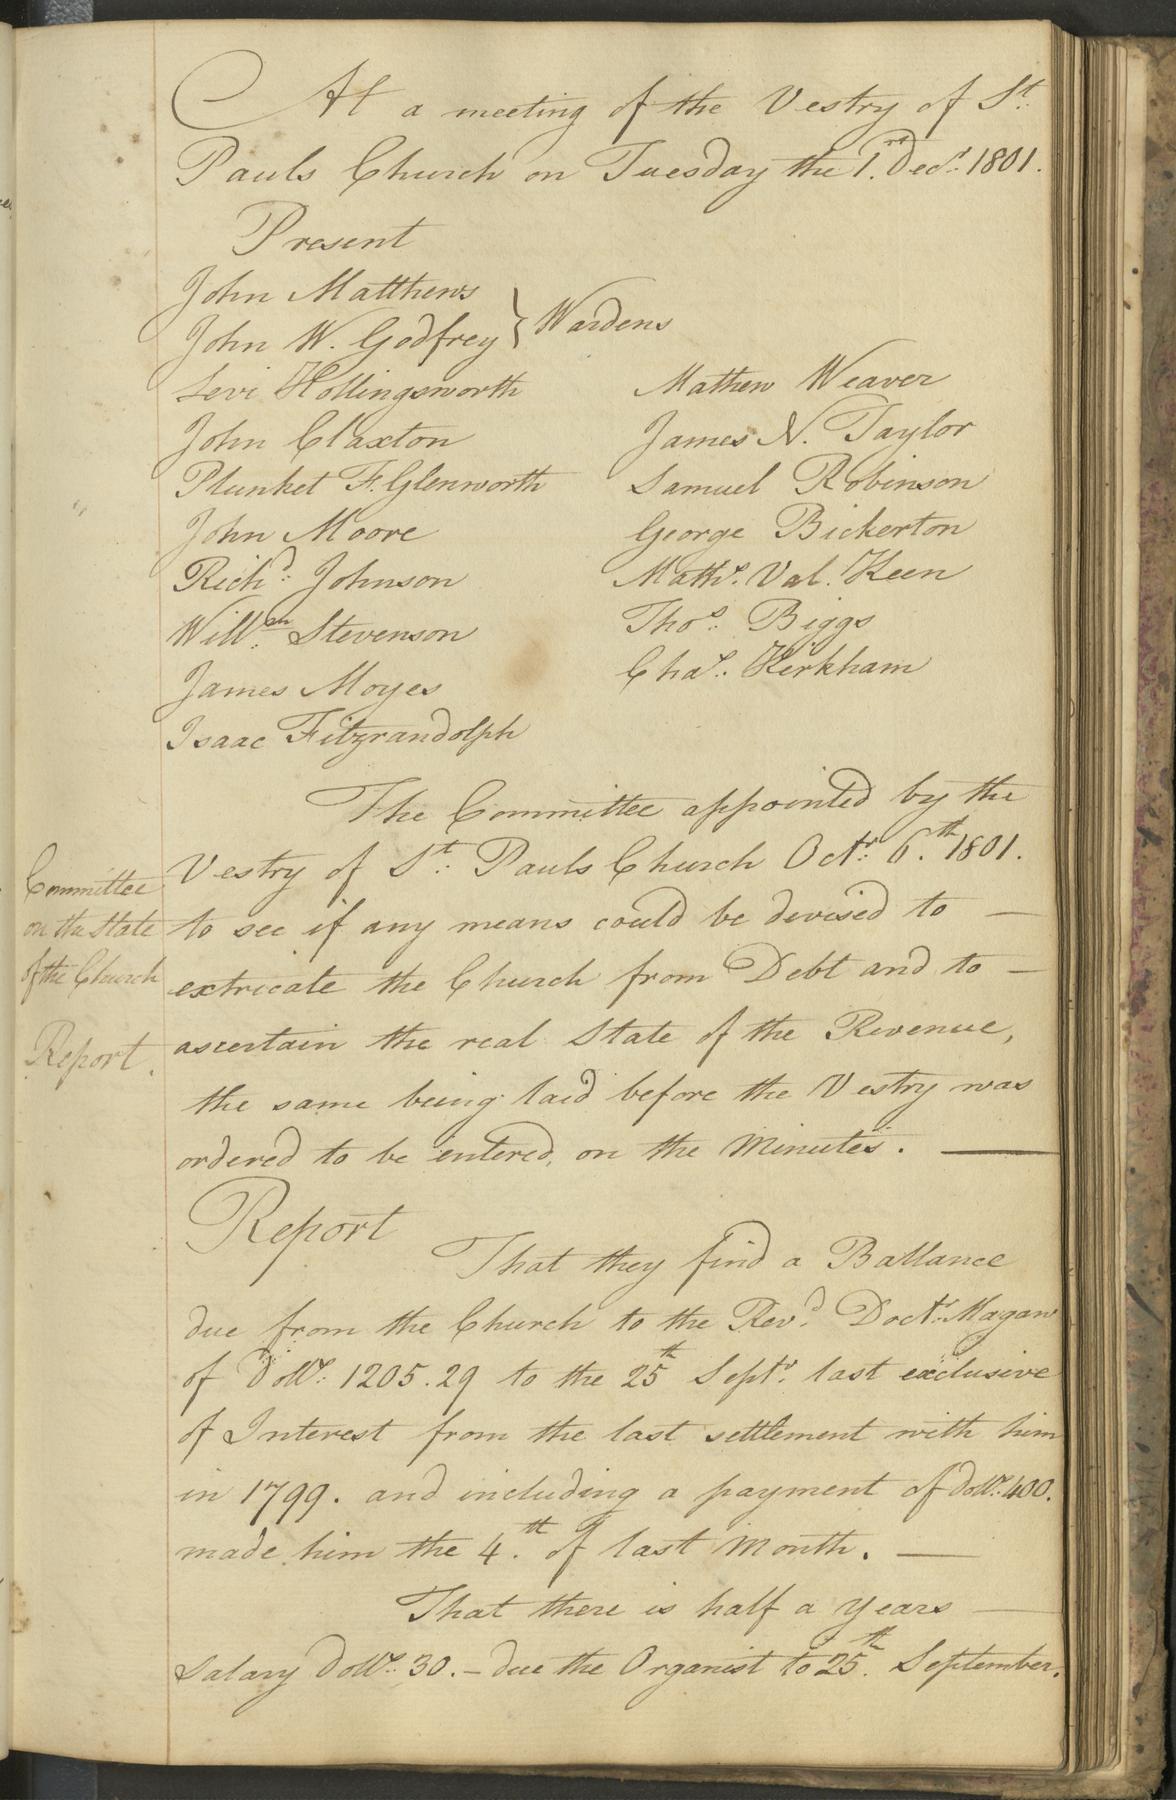 At a meeting of the Vestry of St.
Pauls Church on Tuesday the 1st. Decr. 1801.
Present
John Matthews
John W. Godfrey } Wardens
Levi Hollingsworth
John Claxton
Plunket F. Glenworth
John Moore
Richd. Johnson
Willm. Stevenson
James Moyes
Isaac Fitzrandolph
Mathew Weaver
James N. Taylor
Samuel Robinson
George Bickerton
Maths. Val. Keen
Thos. Biggs
Chas. Kirkham
The Committee appointed by the
Vestry of St. Pauls Church Octr. 6.th 1801.
to see if any means could be devised to —
extricate the Church from Debt and to —
ascertain the real State of the Revenue,
the same being laid before the Vestry was
ordered to be entered, on the Minutes. —
Committee
on the State
of the Church
Report.
Report
That they find a Ballance
due from the Church to the Revd. Doctr. Magaw
of Dolls. 1205.29 to the 25th Septr. last exclusive
of Interest from the last settlement with him
in 1799. and including a payment of Dolls. 400.
made him the 4.th of last Month. —
That there is half a Years —
Salary Dolls. 30. – due the Organist to 25th. September.